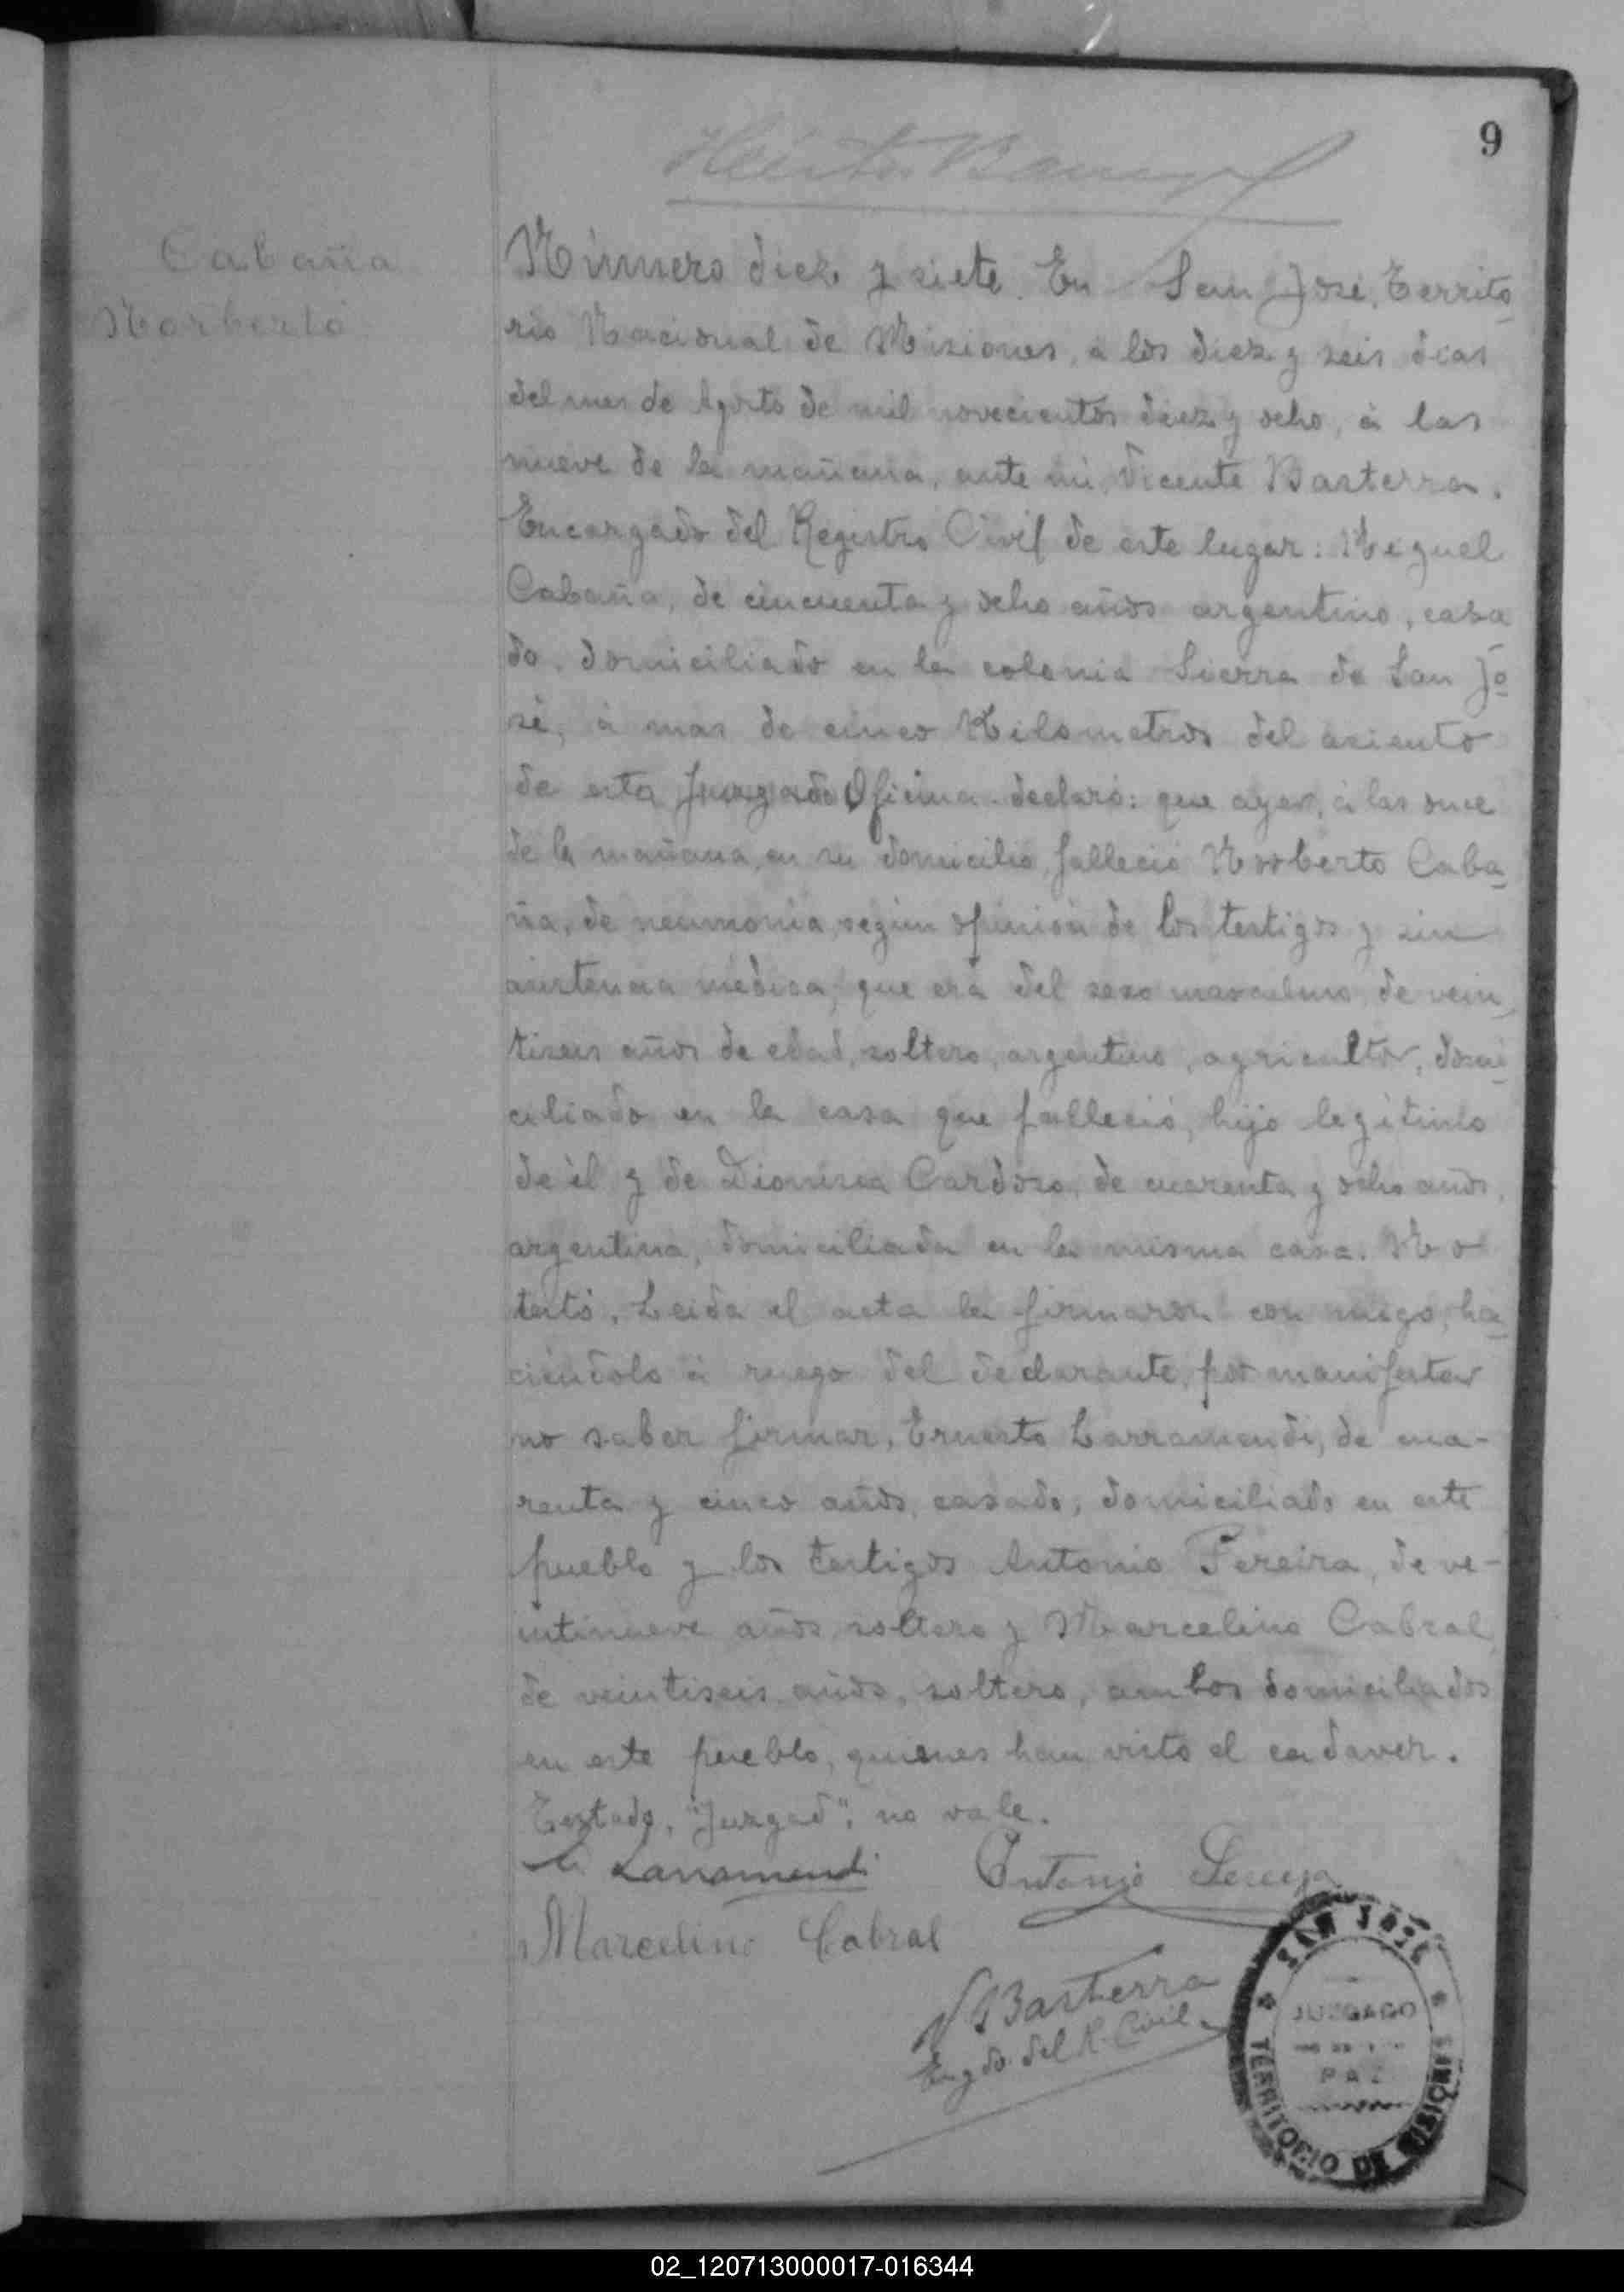 9
Cabaña
Norberto
Número diez y siete. En San José, Territo_
rio Nacional de Misiones, á los diez y seis dias
del mes de Agosto de mil novecientos diez y ocho, á las
nueve de la mañana, ante mi, Vicente Basterra.
Encargado del Registro Civil de este lugar: Miguel
Cabaña, de cincuenta y ocho años argentino, casa_
do, domiciliado en la colonia Sierra de San Jo_
sé, á mas de cinco Kilometros del asiento
de esta Juzgado Oficina declaró: que ayer, á las once
de la mañana, en su domicilio, falleció Norberto Caba_
ña, de neumonia, segun opinion de los testigos y sin
asistencia médica, que era del sexo masculino, de vein_
tiseis años de edad, soltero, argentino, agricultor, domi_
ciliado en la casa que falleció, hijo legítimo
de él y de Dionisia Cardozo, de cuarenta y ocho años,
argentina, domiciliada en la misma casa. No
testó. Leida el acta la firmaron con migo, ha_
ciéndolo á ruego del declarante, por manifestar
no saber firmar, Ernesto Larramendi, de cua-
renta y cinco años, casado, domiciliado en este
pueblo y los testigos Antonio Pereira, de ve-
intinueve años, soltero y Marcelino Cabral,
de veintiseis años, soltero, ambos domiciliados
en este pueblo, quienes han visto el cadaver.
Testado, "Juzgad", no vale.
Larramendi Antonio
Marcelino Cabral
V Basterra
Engdo del R. Civil
SAN JOSE
JUZGADO
PAZ
TERRITORIO DE MISIONES
02_120713000017-016344